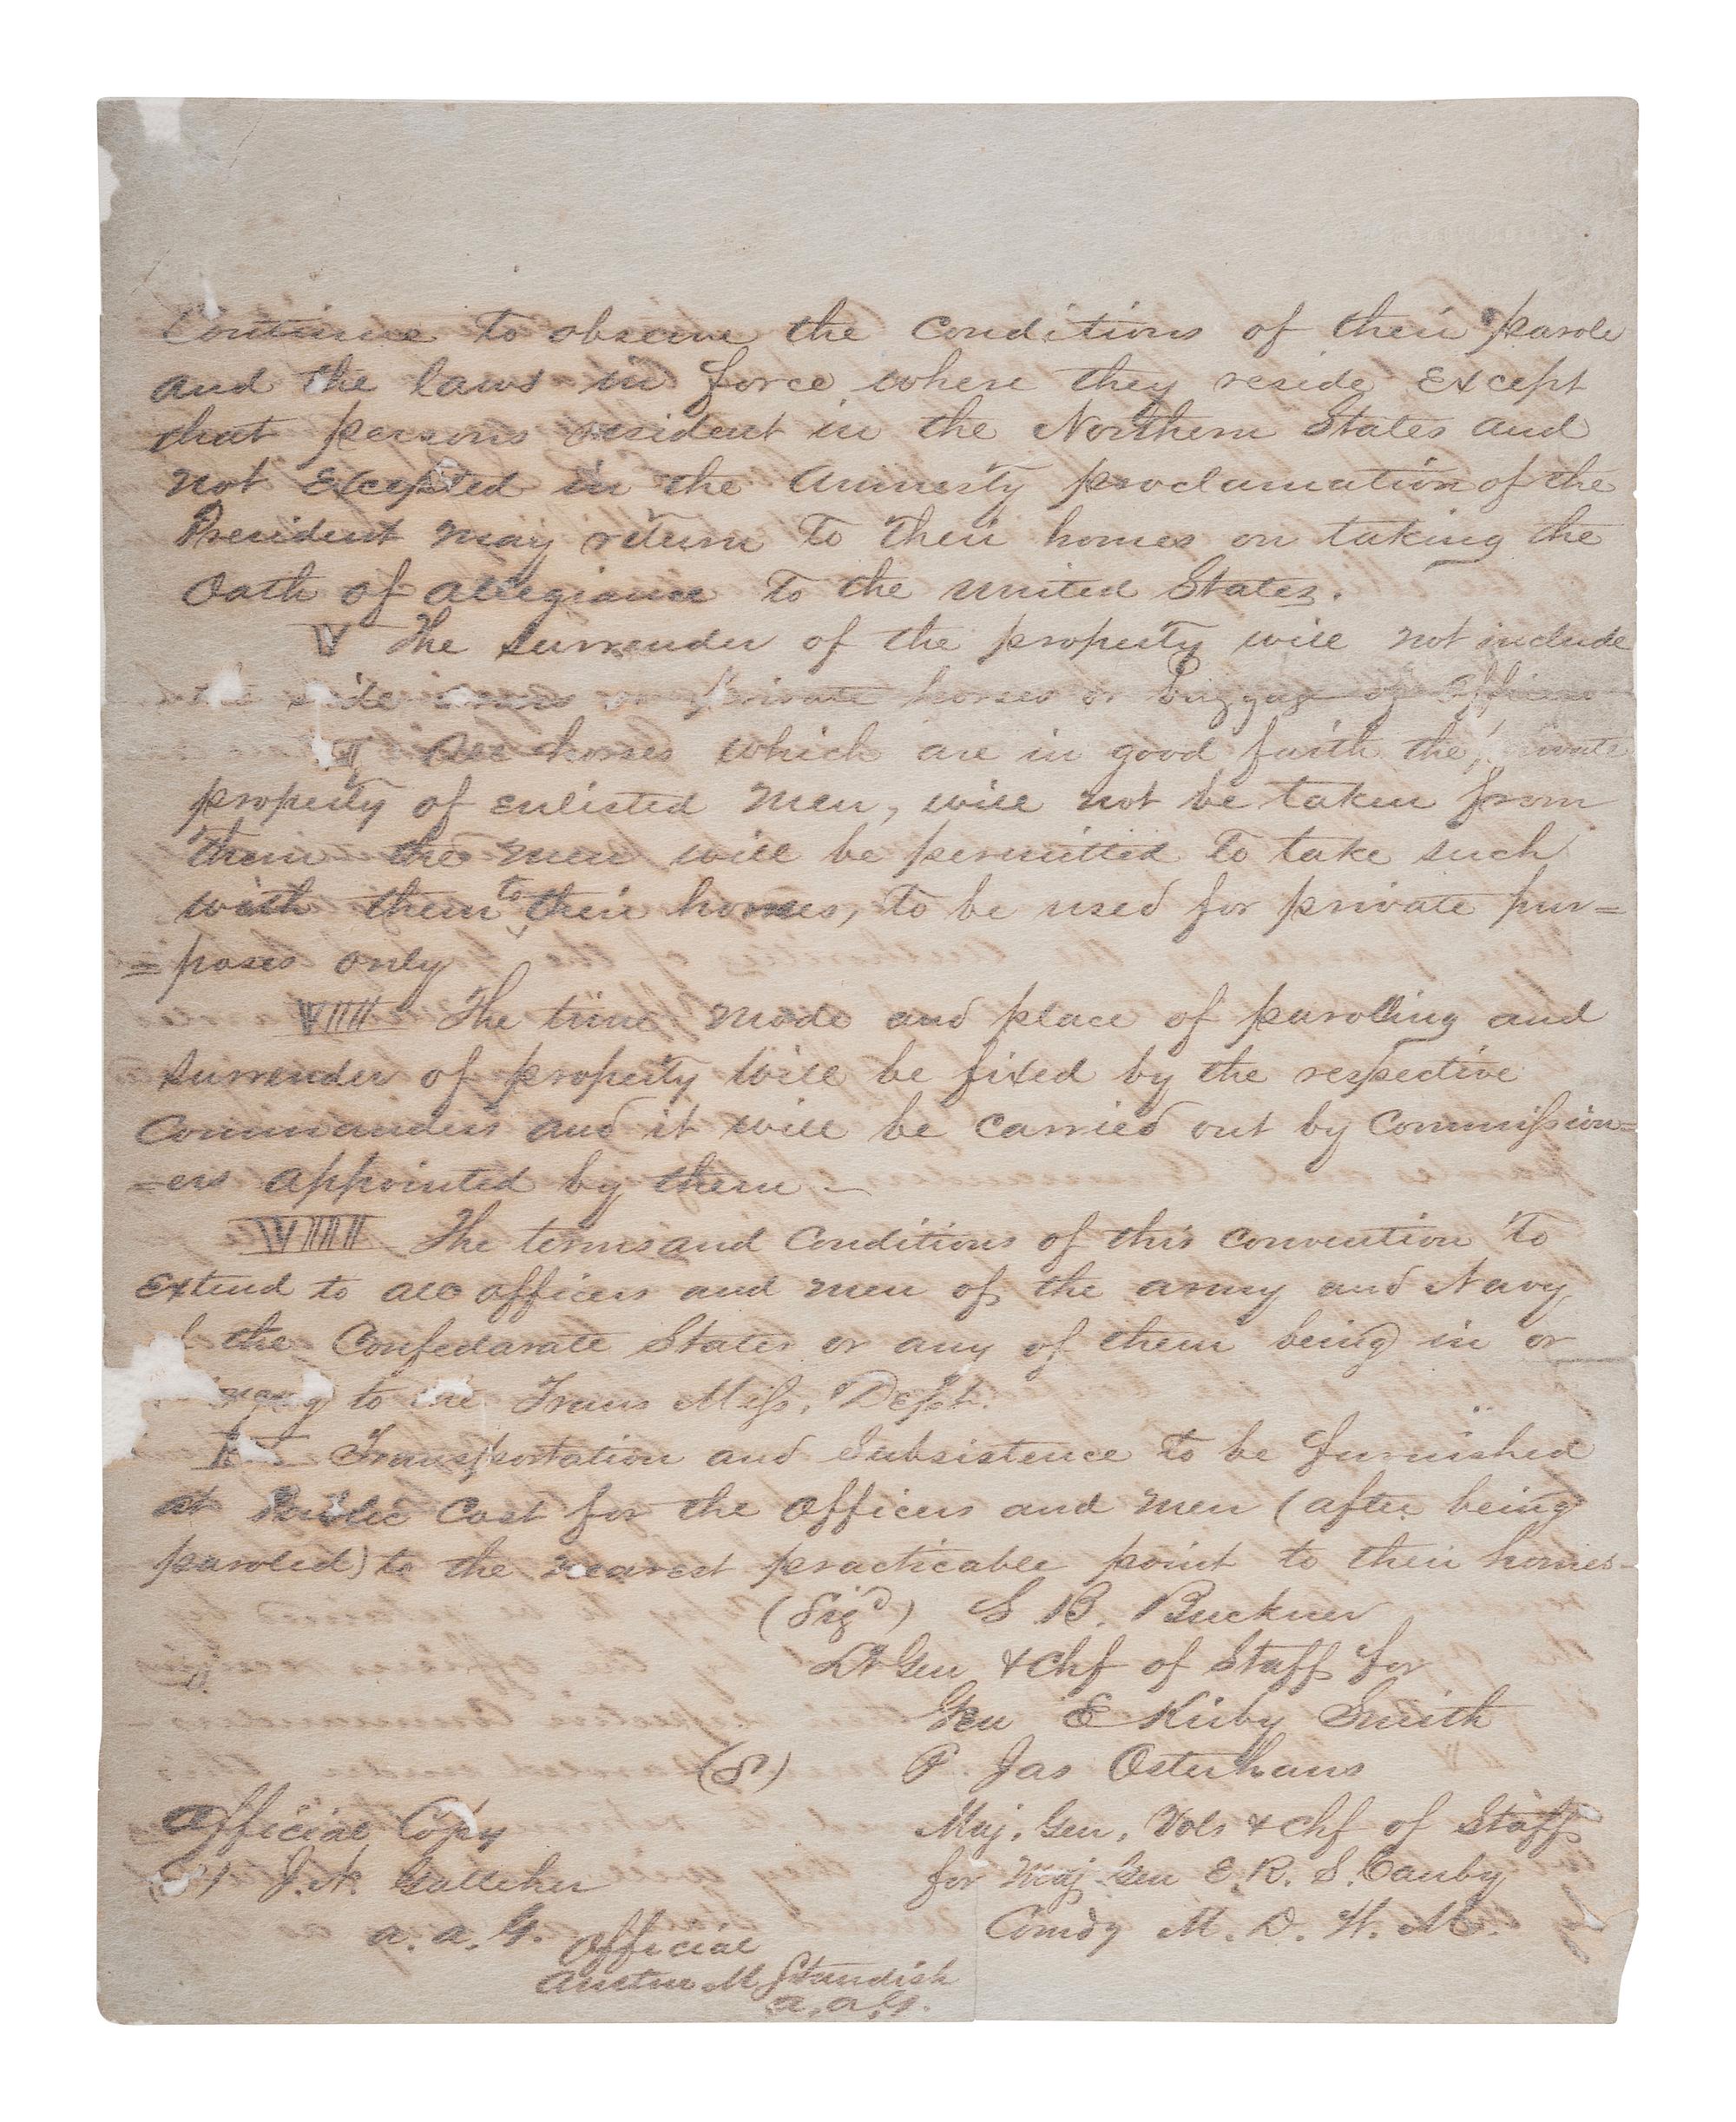 Continue to observe the Conditions of their parole
and the laws in force where they reside Except
that persons resident in the Northern States and
not Excepted in the Amnesty proclamation of the
President may return To their homes on taking the
Oath of allegiance To the United States.
V The surrender of the property will not include
the side arms or private horses or baggage of Officers
All horses which are in good faith the private
property of enlisted Men, will not be taken from
them the men will be permitted To take such
with them to their homes, To be used for private pur=
=poses only
VIII The time Mode and place of paroling and
surrender of property Will be fixed by the respective
Commanders and it will be Carried out by Commission=
=ers appointed by them —
VIIII The terms and Conditions of this Convention To
Extend to all officers and men of the army and Navy
the Confedarate States or any of them being in or
to the Trans Miss, Dept.
Transportation and Subsistence to be furnished
at Public Cost for the Officers and Men (after being
paroled) to the nearest practicable point to their homes—
(Sigd) S B. Buckner
Lt Gen & Chf of Staff for
Gen E Kirby Smith
(S) P. Jas Osterhaus
Maj. Gen, Vols & Chf of Staff
for Maj Gen E. R. S. Canby
Comdg M. D. W. M.
Official Copy
J. N. Galleher
a. a. G.
Official
M Standish
a. a. G.